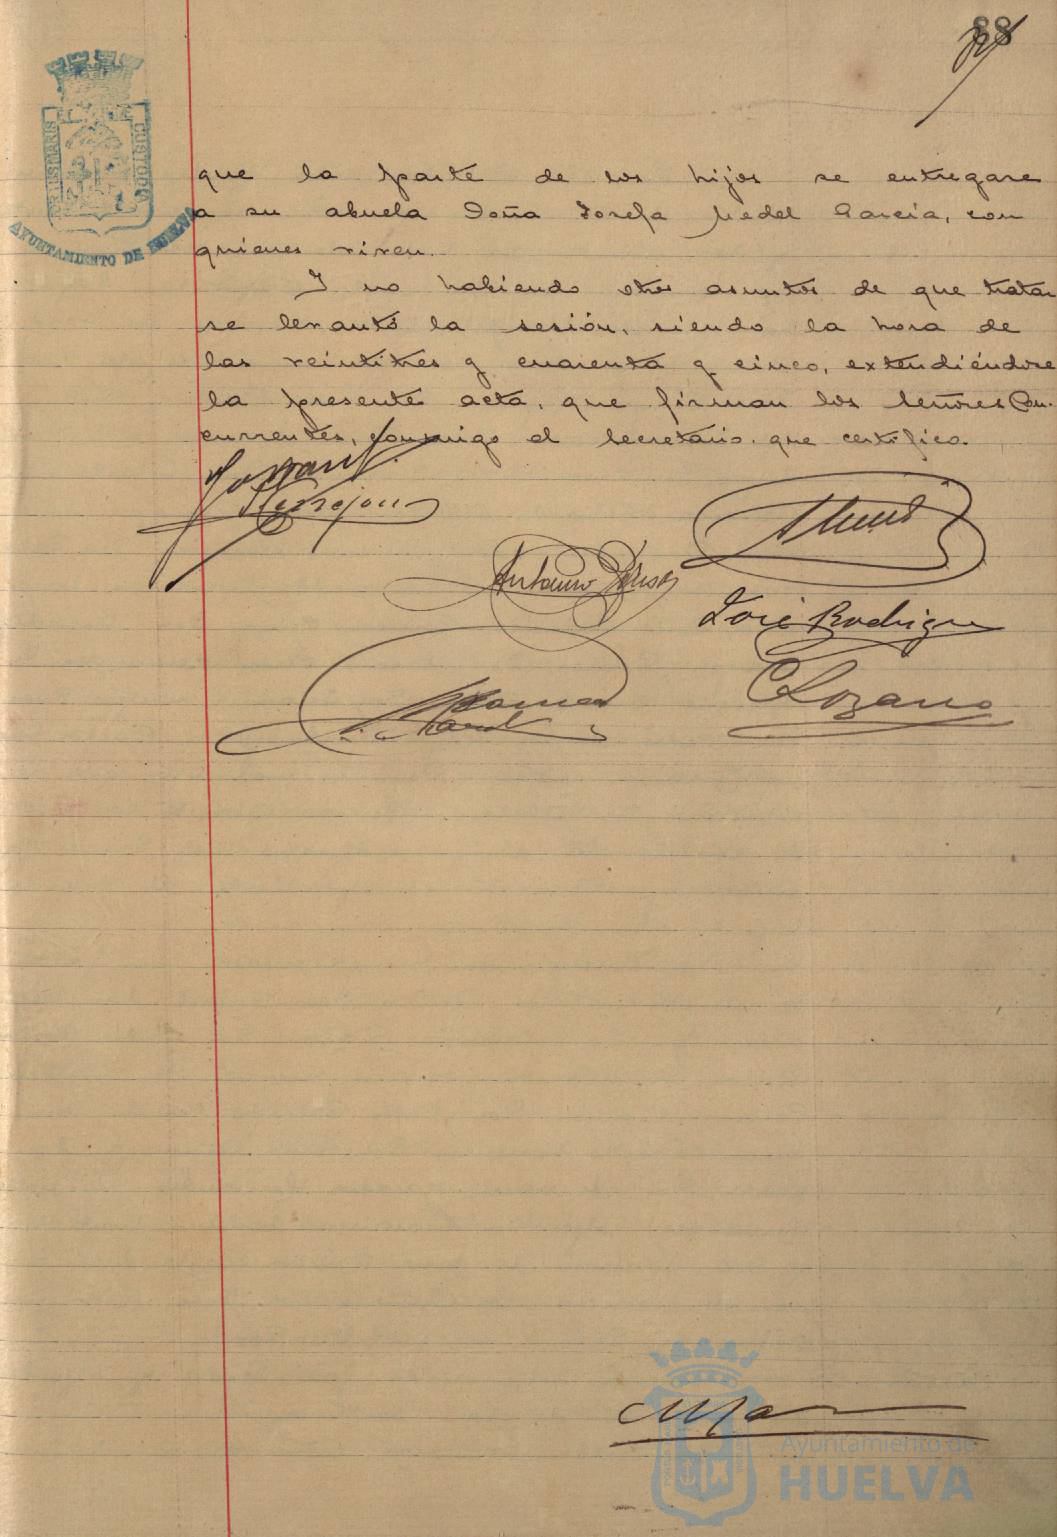 88
PORTUS MARIS
CUSTODIA
AYUNTAMIENTO DE HUELVA
que la parte de los hijos se entregare
a su abuela Doña Josefa Medel García, con
quienes viven.
Y no habiendo otros asuntos de que tratar
se levantó la sesión, siendo la hora de
las veintitres y cuarenta y cinco, extendiéndose
la presente acta, que firman los señores Con-
currentes, conmigo el Secretario que certifico.
Terrejon
Antonio
José Rodrigue
Lozano
Ayuntamiento de
HUELVA